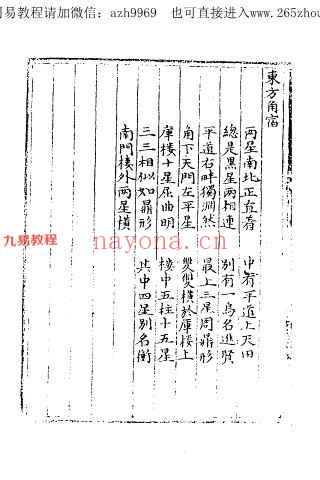 易教程请加微信：azh9969 也可直接进入www.265zhou
東方角宿
兩星南北正直着 中有平道上天田
總是黑星兩相連 別有一烏名進賢
平道右畔獨淵然 最上三星周鼎形
角下天門左平星 雙雙橫於庫樓上
庫樓十星屈曲明 樓中五柱十五星
三三相似如鼎形 其中四星別名衡
南門樓外兩星橫
九易教程
nayona.cn